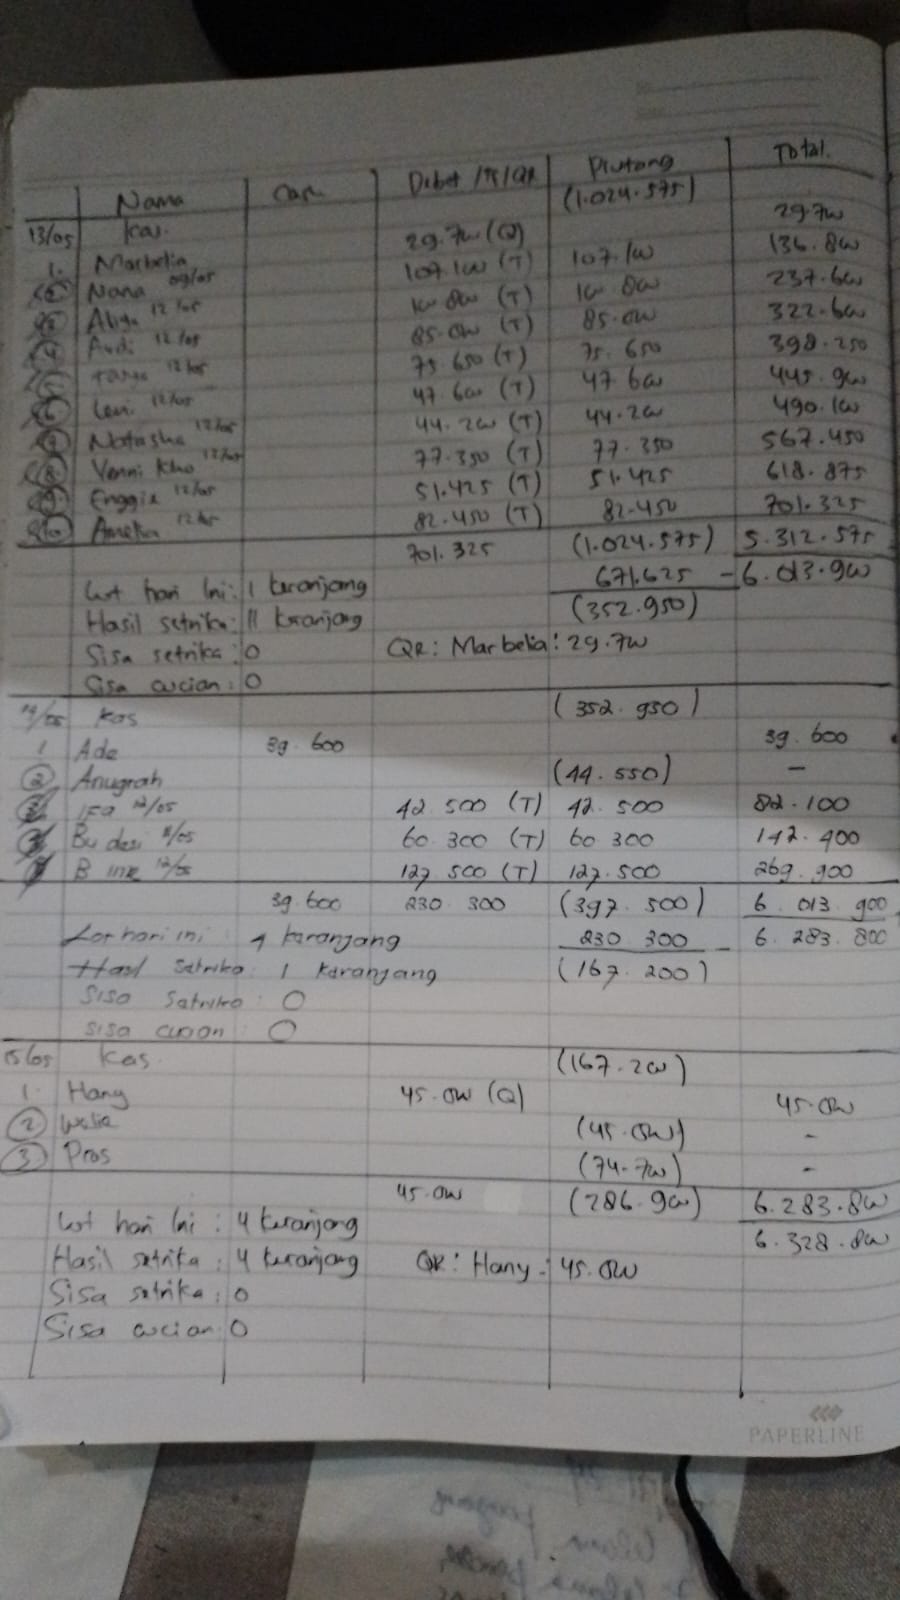 Nama Cash Debet /TF/QR Piutang Total.
13/05 Kas. (1.024.575)
1. Marbelia 29.700 (Q) 29.700
2 Nana 09/05 107.100 (T) 107.100 136.800
3 12/05 100.800 (T) 100.800 237.600
4 Andi 12/05 85.000 (T) 85.000 322.600
5 12/05 75.650 (T) 75.650 398.250
6 Leni 12/05 47.600 (T) 47.600 445.900
7 Natasha 12/05 44.200 (T) 44.200 490.100
8 Venni Kho 12/05 77.350 (T) 77.350 567.450
9 Enggie 12/05 51.425 (T) 51.425 618.875
10 Amelia 12/05 82.450 (T) 82.450 701.325
701.325 (1.024.575) 5.312.575
hari Ini : 1 keranjang 671.625 - 6.013.900
Hasil setrika : 11 keranjang (352.950)
Sisa setrika : 0 QR : Marbelia : 29.700
Sisa cucian : 0
14/05 Kas (352.950)
1 Ade 39.600 39.600
2 Anugrah (44.550) -
12/05 42.500 (T) 42.500 82.100
60.300 (T) 60.300 142.400
12/05 127.500 (T) 127.500 269.900
39.600 230.300 (397.500) 6.013.900
hari ini : 4 keranjang 230.300 - 6.283.800
Hasil Setrika : 1 Keranjang (167.200)
Sisa Setrika : 0
Sisa cucian : 0
15/05 Kas. (167.200)
1. Hany 45.000 (Q) 45.000
2 (45.000) -
3 Pros (74.700) -
45.000 (286.900) 6.283.800
hari Ini : 4 keranjang 6.328.800
Hasil setrika : 4 keranjang QR : Hany : 45.000
Sisa setrika : 0
Sisa cucian : 0
PAPERLINE